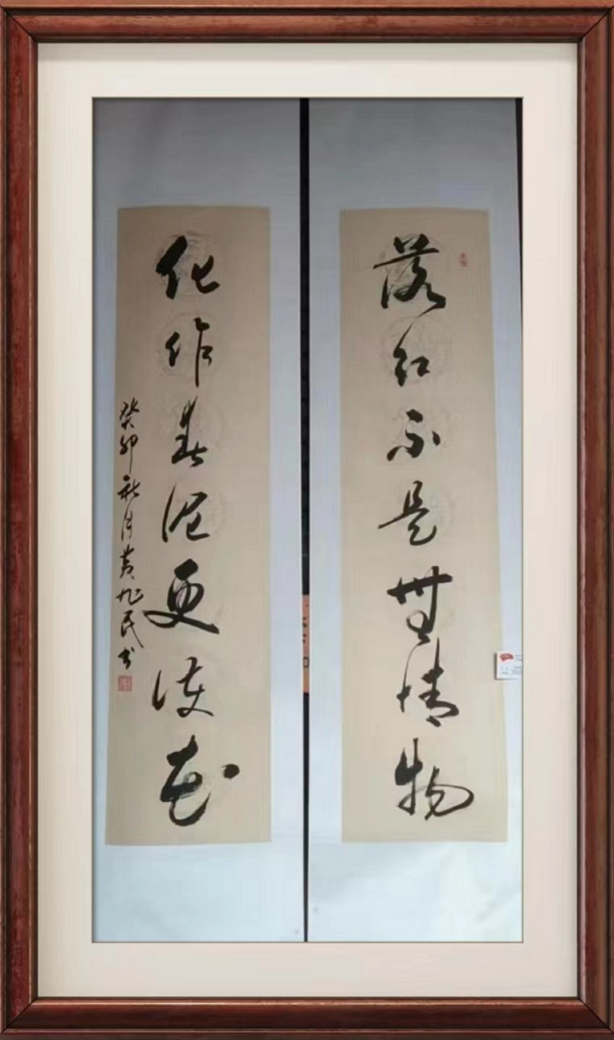 落红不是無情物
化作春泥更护花
癸卯秋月黄旭民书